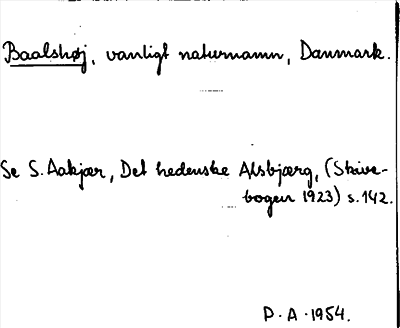 Baalshøj, vanligt naturnamn, Danmark.
Se S. Aakjær, Det hedenske Alsbjærg, (Skive-
bogen 1923) s. 142.
P. A. 1954.